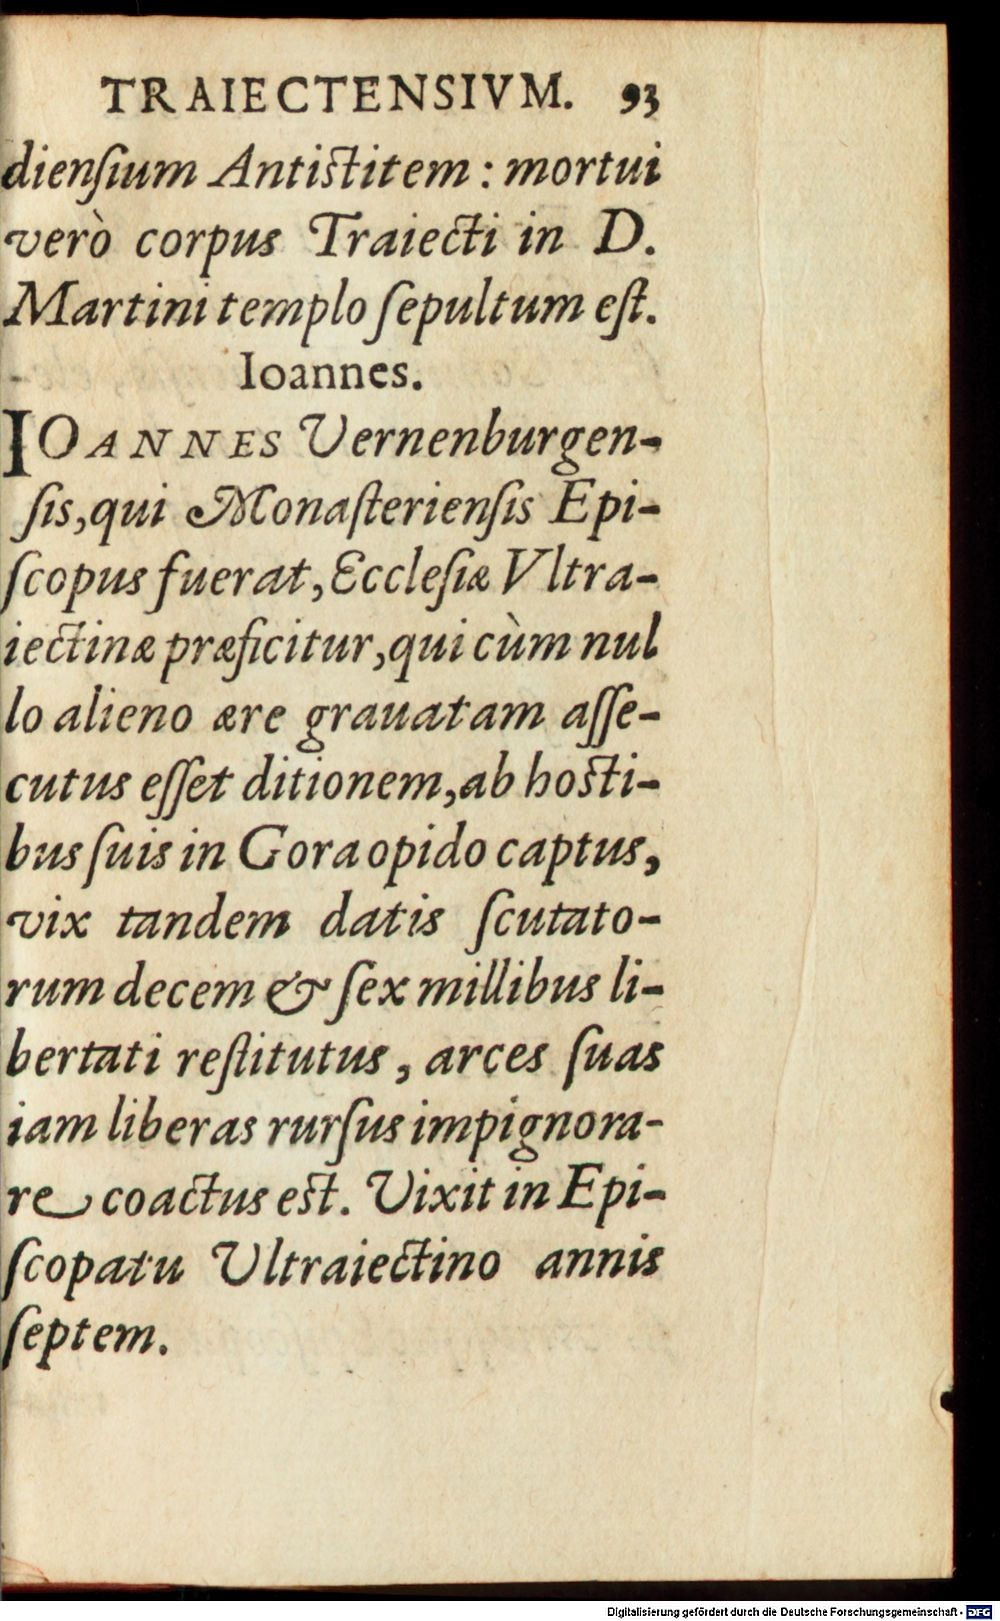 TRAIECTENSIVM. 93
dienſium Antistitem: mortui
verò corpus Traiecti in D.
Martini templo ſepultum eſt.
Ioannes.
IOANNES Vernenburgen-
ſis, qui Monaſterienſis Epi-
ſcopus fuerat, Eccleſiæ Vltra-
iectinæ præficitur, qui cùm nul
lo alieno ære grauatam aſſe-
cutus eſſet ditionem, ab hosti-
bus ſuis in Gora opido captus,
vix tandem datis ſcutato-
rum decem & ſex millibus li-
bertati reſtitutus, arces ſuas
iam liberas rurſus impignora-
re coactus est. Vixit in Epi-
ſcopatu Ultraiectino annis
ſeptem.
Digitalisierung gefördert durch die Deutsche Forschungsgemeinschaft - DFG